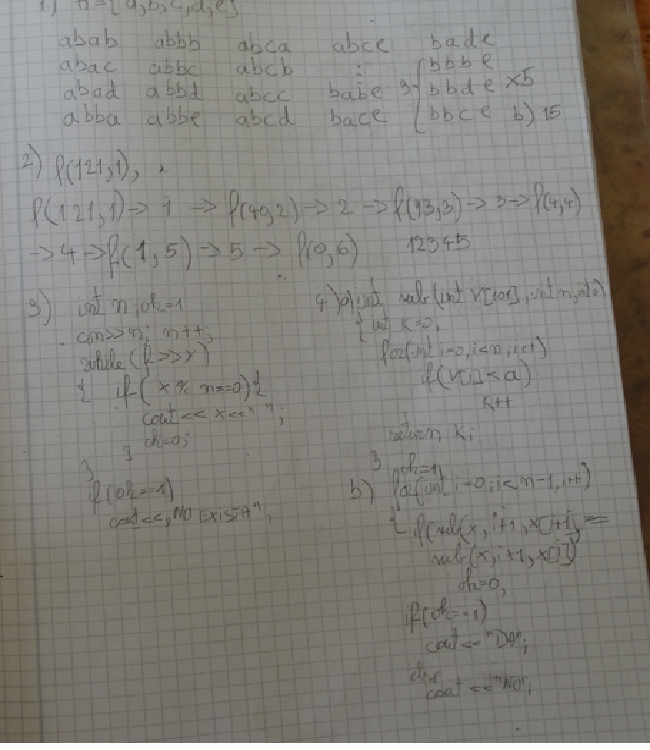 1.) A={a,b,c,d,e}
abab abbb abca abce bade
abac abbc abcb : bbbe
abad abbd abcc babe 3 bbde x5
abba abbe abcd bace bbce b) 15
2) f(121,1),
f(121,1)-> 1 -> f(40,2)-> 2 -> f(13,3)-> 3-> f(4,4)
-> 4 -> f(1,5) -> 5 -> f(0,6) 12345
3) int n, ok=1
cin>>n; n++;
while(f>>x)
{ if(x % n==0){
cout << x<<" ";
ok=0;
}
}
if(ok==1)
cout<<"NO EXISTA";
4) a) int sub(int v[101], int n, int a)
{ int k=0;
for(int i=0; i<n; i++)
if(v[i]<a)
k++
return k;
}
b) ok=1
for(int i=0; i<n-1; i++)
{ if(sub(x, i+1, x[i+1] ==
sub(x, i+1, x[i])
ok=0;
if(ok==1)
cout<<"DA";
else
cout <<"NU";